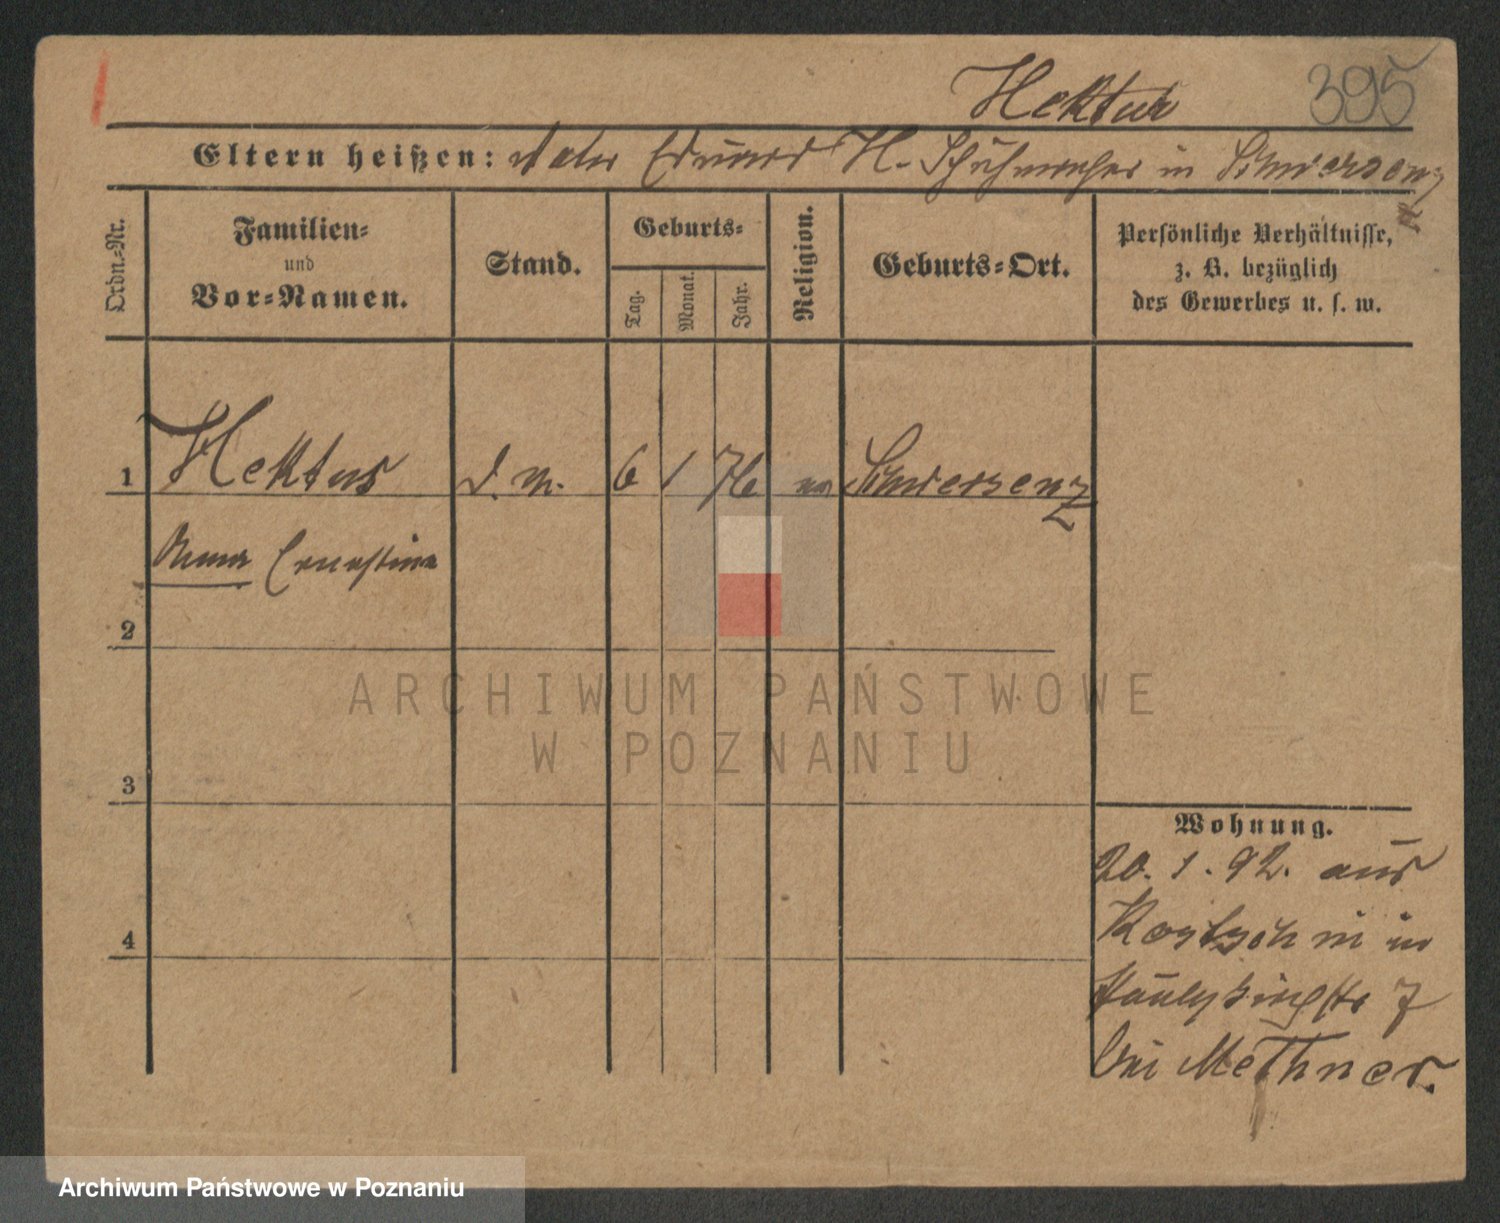 Hektus
395
Eltern heißen: Vater Eduard H. Schuhmacher in Schwersenz
Ordn.-Nr.
Familien-
und
Vor-Namen.
Stand.
Geburts-
Tag.
Monat.
Jahr.
Religion.
Geburts-Ort.
Persönliche Verhältnisse,
z. B. bezüglich
des Gewerbes u. s. w.
1 Hektus d. M. 6 1 76 ev Schwersenz
Anna Ernestine
2
3
4
Wohnung.
20. 1. 92. aus
Kostschin in
Paulykirchstr 7
bei Methner.
ARCHIWUM PAŃSTWOWE
W POZNANIU
Archiwum Państwowe w Poznaniu